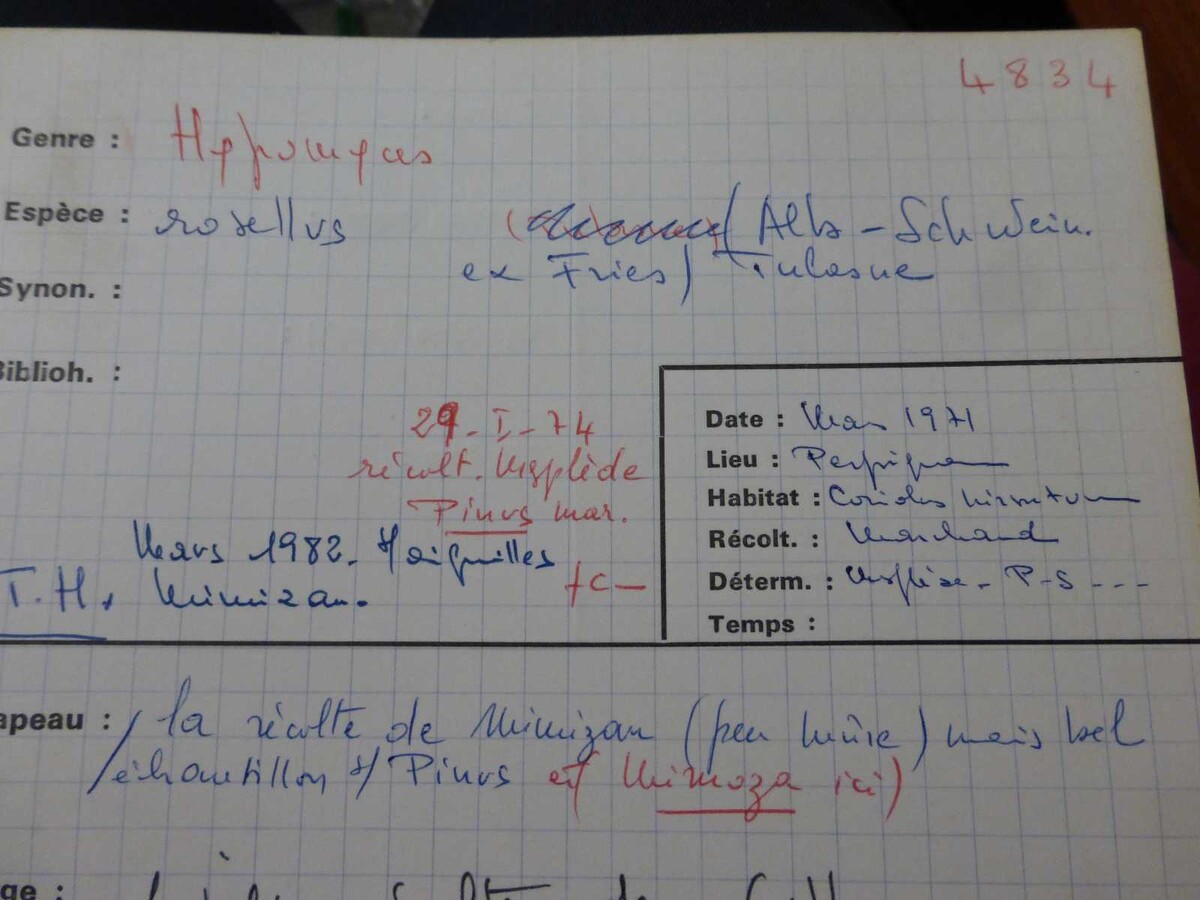 4834
Genre : Hypomyces
Espèce : rosellus (Alb-Schwein.
ex Fries) Tulasne
Synon. :
Biblioh. :
29-I-74
récolt. Mesplède
Pinus mar.
Mars 1982. S/aiguilles
T.H. Mimizan.
Date : Mars 1971
Lieu : Perpignan
Habitat : Coriolus hirsutum
Récolt. : Marchand
Déterm. : Mesplède - P-S ---
Temps :
apeau : la récolte de Mimizan (peu mûre) mais bel
échantillon s/ Pinus et Mimoza ici)
ge :